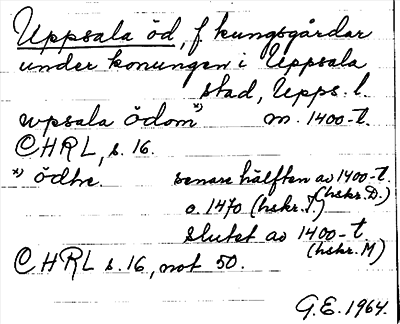 Uppsala öd, f kungsgårdar
under konungen i Uppsala
stad, Upps. l.
upsala ödom *) m. 1400-t.
CHRL, s. 16.
*) ödhe. senare hälften av 1400-t.
(hskr. D.)
o. 1470 (hskr. J.)
slutet av 1400-t.
(hskr. M)
CHRL s. 16, not 50.
G.E. 1964.